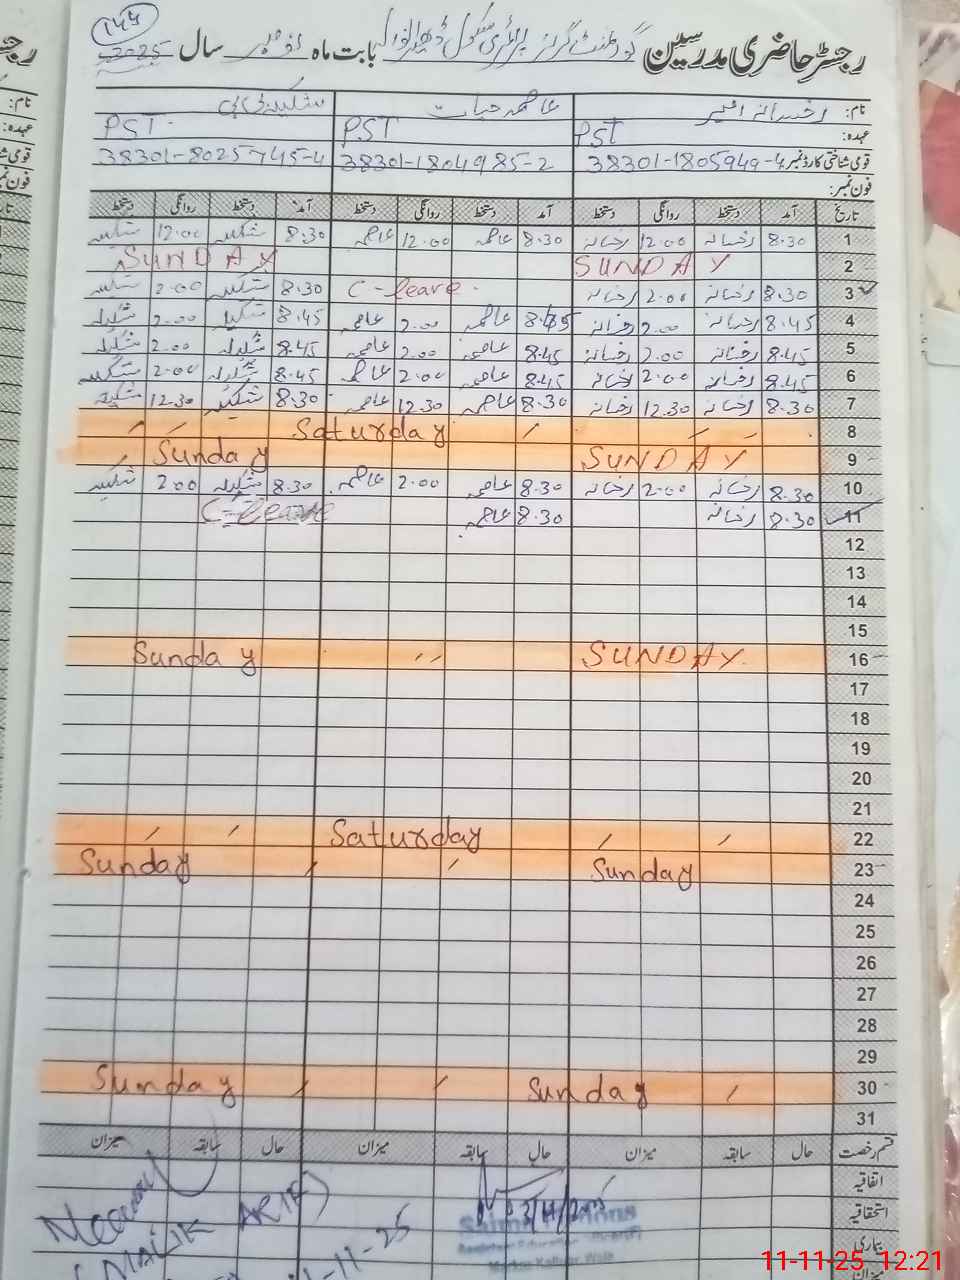 144
رجسٹر حاضری مدرسین گورنمنٹ گرلز پرائمری سکول بابت ماہ سال 2025
نام: رخسانہ عاصمہ حیات شکیلہ بی بی
عہدہ: PST PST PST
قومی شناختی کارڈ نمبر 38301-1805949-4 38301-1804985-2 38301-8025745-4
فون نمبر:
تاریخ آمد دستخط روانگی دستخط آمد دستخط روانگی دستخط آمد دستخط روانگی دستخط
1 8.30 رخسانہ 12.00 رخسانہ 8.30 عاصمہ 12.00 عاصمہ 8.30 شکیلہ 12.00 شکیلہ
2 SUNDAY SUNDAY
3 8.30 رخسانہ 2.00 رخسانہ C-leave. 8.30 شکیلہ 2.00 شکیلہ
4 8.45 رخسانہ 2.00 رخسانہ 8.45 عاصمہ 2.00 عاصمہ 8.45 شکیلہ 2.00 شکیلہ
5 8.45 رخسانہ 2.00 رخسانہ 8.45 عاصمہ 2.00 عاصمہ 8.45 شکیلہ 2.00 شکیلہ
6 8.45 رخسانہ 2.00 رخسانہ 8.45 عاصمہ 2.00 عاصمہ 8.45 شکیلہ 2.00 شکیلہ
7 8.30 رخسانہ 12.30 رخسانہ 8.30 عاصمہ 12.30 عاصمہ 8.30 شکیلہ 12.30 شکیلہ
8 Saturday
9 SUNDAY Sunday
10 8.30 رخسانہ 2.00 رخسانہ 8.30 عاصمہ 2.00 عاصمہ 8.30 شکیلہ 2.00 شکیلہ
11 8.30 رخسانہ 8.30 عاصمہ C-leave
12
13
14
15
16 SUNDAY Sunday
17
18
19
20
21
22 Saturday
23 Sunday Sunday
24
25
26
27
28
29
30 Sunday Sunday
31
قسم رخصت حال سابقہ میزان حال سابقہ میزان حال سابقہ میزان
اتفاقیہ
استحقاقیہ
بیماری
میزان
MALIK ARIF
11-11-25 12:21